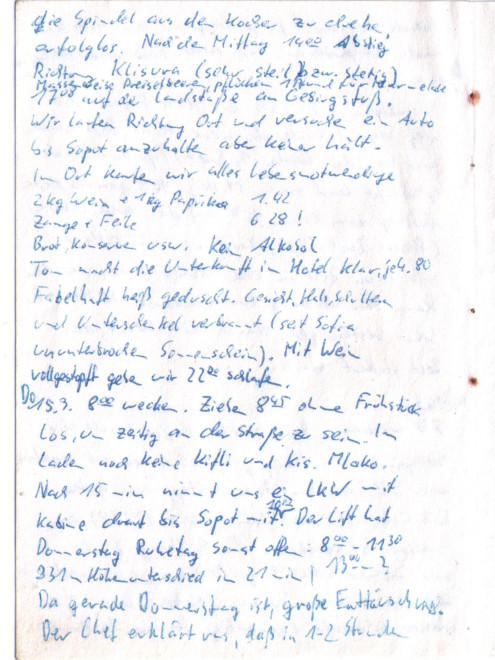 die Spindel aus dem Kocher zu drehen,
erfolglos. Nach dem Mittag 14⁰⁰ Abstieg
Richtung Klisura (sehr steil bzw. stetig)
Massenweise Preiselbeeren, pflücken 1 Pfund für Marmelade
17⁰⁰ auf der Landstraße am Gebirgsfuß.
Wir laufen Richtung Ort und versuchen ein Auto
bis Sopot anzuhalten aber keiner hält.
Im Ort kaufen wir alles lebensnotwendige
2kg Wein + 1kg Paprika 1.42
Zange + Feile 6.28!
Brot, Konserven usw. Kein Alkohol
Tom macht die Unterkunft im Hotel klar, je 4.80
Fabelhaft heiß geduscht. Gesicht, Hals, Schultern
und Unterschenkel verbrannt (seit Sofia
ununterbrochen Sonnenschein). Mit Wein
vollgestopft gehen wir 22⁰⁰ schlafen.
Do 15.9. 8⁰⁰ wecken. Ziehen 8⁴⁵ ohne Frühstück
los, um zeitig an der Straße zu sein. Im
Laden noch keine Kifli und Kis. Mlako.
Nach 15 min nimmt uns ein LKW mit
Kabine drauf bis Sopot mit. Der Lift hat
Donnerstag Ruhetag sonst offen 8⁰⁰ - 11³⁰
331m Höhenunterschied in 21 min! 13⁰⁰ - ?
Da gerade Donnerstag ist, große Enttäuschung.
Der Chef erklärt uns, daß in 1-2 Stunden